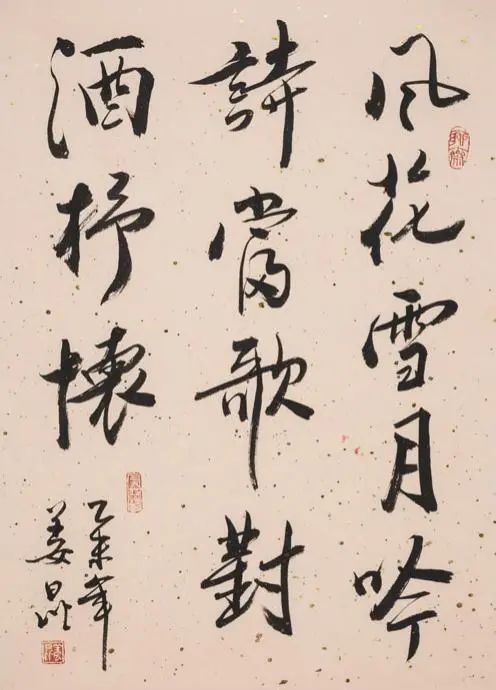 風花雪月吟
詩當歌對
酒抒懷
乙未年
姜昆